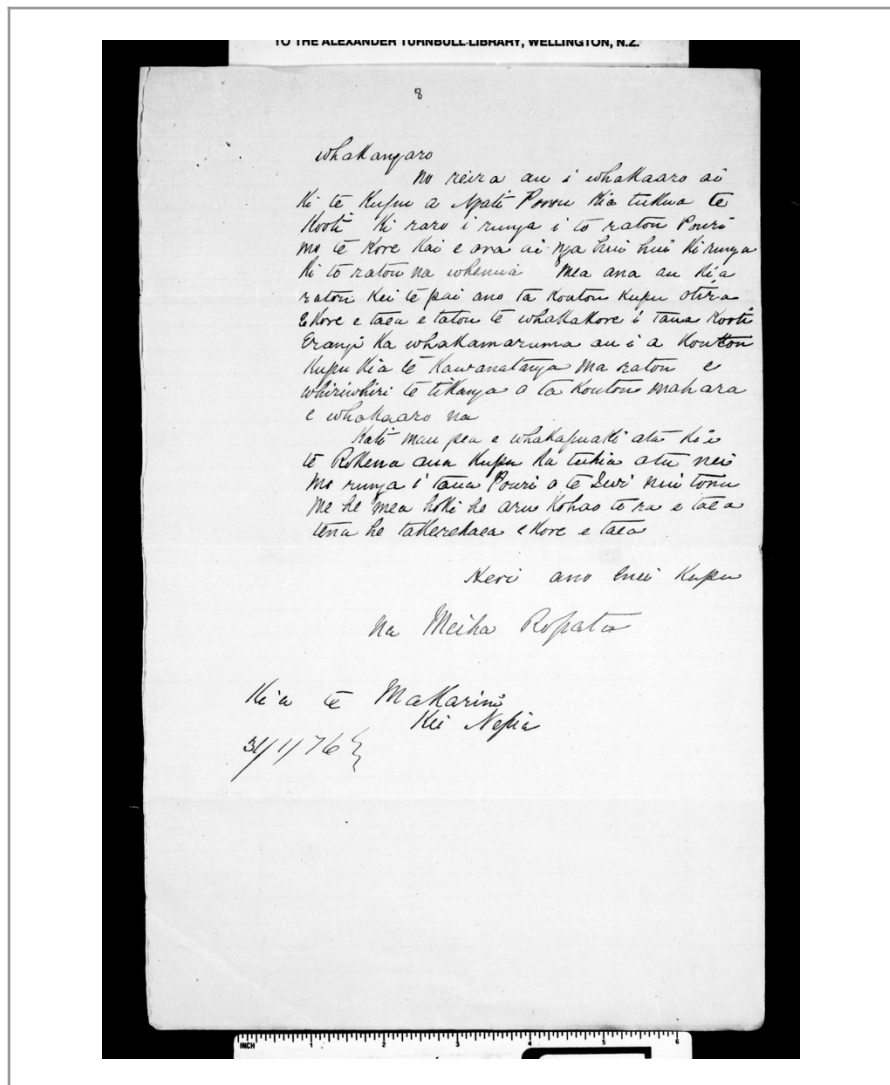 TO THE ALEXANDER TURNBULL LIBRARY, WELLINGTON, N.Z.
8
whakangaro
No reira au i whakaaro ai
ki te kupu a Ngati Porou kia tukua te
Kooti ki raro i runga i to ratou Pouri
mo te kore kai e ara ai nga hui hui ki runga
ki to ratou na whenua mea ana au kia
ratou kei te pai ano ta koutou kupu otira
Ekore e taea e tatou te whakakore i taua kooti
Erangi ka whakamaruma au i a koutou
kupu kia te Kawanatanga ma ratou e
whiriwhiri te tikanga o ta koutou mahara
e whakaaro na
Kati mau pea e whakapuaki atu ki
te Rokena aua kupu ka tukia atu nei
mo runga i taua Pouri o te Iwi nui tonu
me he mea hoki he aru kohao te ra e taea
tena he takerehaea ekore e taea
Heri ano enei kupu
Na Meiha Ropata
Kia te Makarini
Kei Nepia
31/1/76
INCH 1 2 3 4 5 6